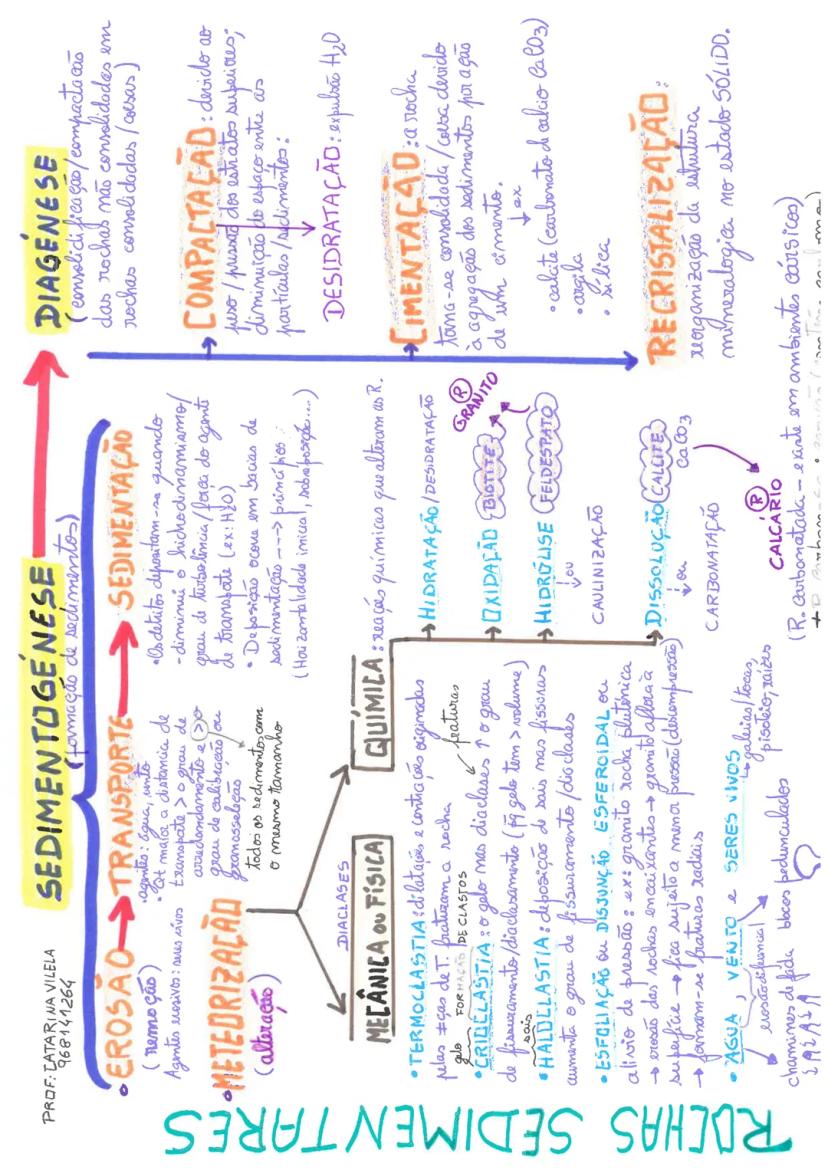 PROF: CATARINA VILELA
968141264
ROCHAS SEDIMENTARES
SEDIMENTOGÉNESE
(formação de sedimentos)
DIAGÉNESE
(consolidificação/compactação
das rochas não consolidadas em
rochas consolidadas/coesas)
• EROSÃO
(remoção)
Agentes erosivos: seres vivos
TRANSPORTE
agentes: água, vento
• Qt maior a distancia de
transporte > o grau de
arredondamento e >o
grau de calibração ou
granosseleção
todos os sedimentos com
o mesmo tamanho
SEDIMENTAÇÃO
• Os detritos depositam-se quando
- diminui o hidrodinamismo/
grau de turbolência/força do agent
de transporte (ex: H2O)
• Deposição ocorre em bacias de
sedimentação ---> princípios:
(Horizontalidade inicial, sobreposição...)
• METEORIZAÇÃO
(alteração)
DIACLASES
MECÂNICA OU FÍSICA
• TERMOCLASTIA: dilatações e contrações originadas
pelas ≠ças de T. fraturam a rocha
gelo FORMAÇÃO DE CLASTOS
fraturas
• CRIOCLASTIA: o gelo nas diaclases ↑ o grau
de fissuramento/diaclasamento (pq gelo tem > volume)
sais
• HALOCLASTIA: deposição de sais nas fissuras
aumenta o grau de fissuramento/diaclases
• ESFOLIAÇÃO ou DISJUNÇÃO ESFEROIDAL ou
alivio de pressão: ex: granito rocha plutónica
→ erosão das rochas encaixantes → granito aflora à
superfície → fica sujeito a menor pressão (descompressão)
→ formam-se fraturas radiais
• ÁGUA, VENTO e SERES VIVOS
galerias/tocas,
pisoteio, raízes
erosão diferencial
chaminés de fada
blocos pedunculados
QUÍMICA: reações químicas que alteram as R.
HIDRATAÇÃO/DESIDRATAÇÃO
OXIDAÇÃO BIOTITE
R
GRANITO
HIDRÓLISE FELDESPATO
ou
CAULINIZAÇÃO
DISSOLUÇÃO CALCITE
CaCO3
ou
CARBONATAÇÃO
R
CALCÁRIO
(R. carbonatada - existe em ambientes cársicos)
COMPACTAÇÃO: devido ao
peso/pressão dos estratos superiores;
diminuição do espaço entre as
partículas/sedimentos:
DESIDRATAÇÃO: expulsão H2O
CIMENTAÇÃO: a rocha
torna-se consolidada/coesa devido
à agregação dos sedimentos por ação
de um cimento.
ex
• calcite (carbonato de calcio CaCO3)
• argila
• sílica
RECRISTALIZAÇÃO:
reorganização da estrutura
mineralogica no estado SÓLIDO.